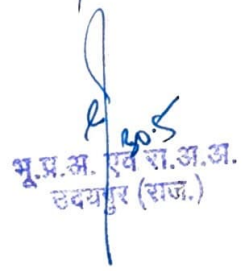 30.5
भू.प्र.अ. एवं रा.अ.अ.
उदयपुर (राज.)